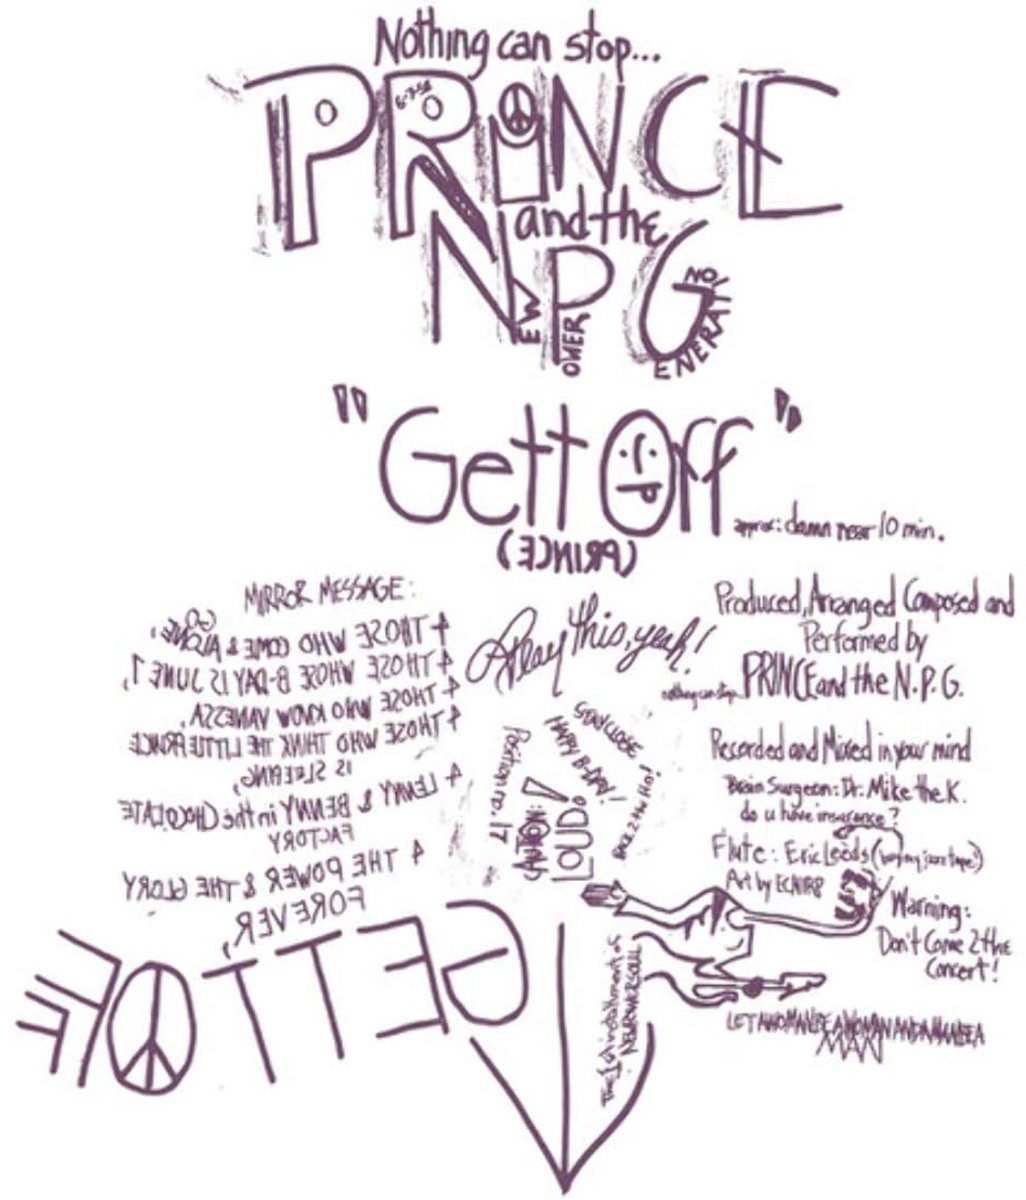 Nothing can stop...
PRINCE
6-7-58
and the
NPG
NEW POWER GENERATION
"Gett Off"
approx: damn near 10 min.
(PRINCE)
MIRROR MESSAGE:
4 THOSE WHO COME & R GONE,
4 THOSE WHOSE B-DAY IS JUNE 7,
4 THOSE WHO KNOW VANESSA,
4 THOSE WHO THINK THE LITTLE PRINCE
IS SLEEPING,
4 LENNY & BENNY in the CHOCOLATE
FACTORY
4 THE POWER & THE GLORY
FOREVER,
GETT OFF
Play this, yeah!
STAY CLOSE
HAPPY B-DAY!
BACK 2 the Hotel
LOUD!
Position no. 17
Produced, Arranged Composed and
Performed by
nothing can stop... PRINCE and the N.P.G.
Recorded and Mixed in your mind
Brain Surgeon: Dr. Mike the K.
do u have insurance?
Flute: Eric Leeds (buy my jazz tape!)
Art by ECNIRP
Warning:
Don't Come 2 the
Concert!
The 1st installment of
NEWPOWERSOUL
LET A WOMAN BE A WOMAN AND A MAN BE A
MAN